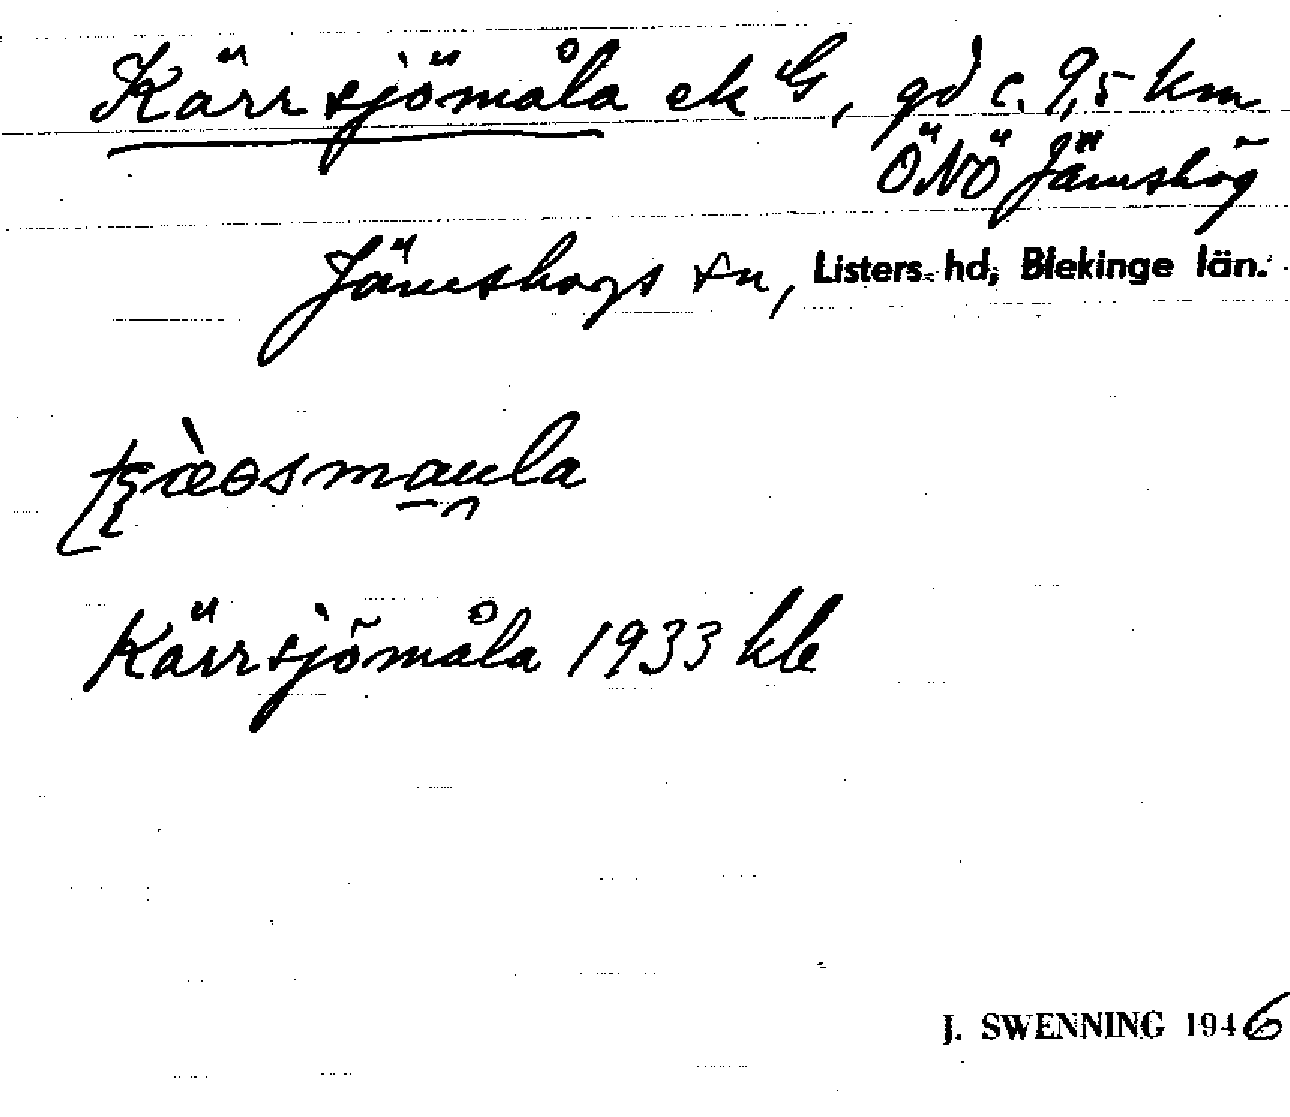 Kärrsjömåla ek G, gd c. 9,5 km
ÖNÖ Jämshög
Jämshogs sn, Listers hd, Blekinge län.
Kärrsjömåla 1933 kb
J. SWENNING 1946